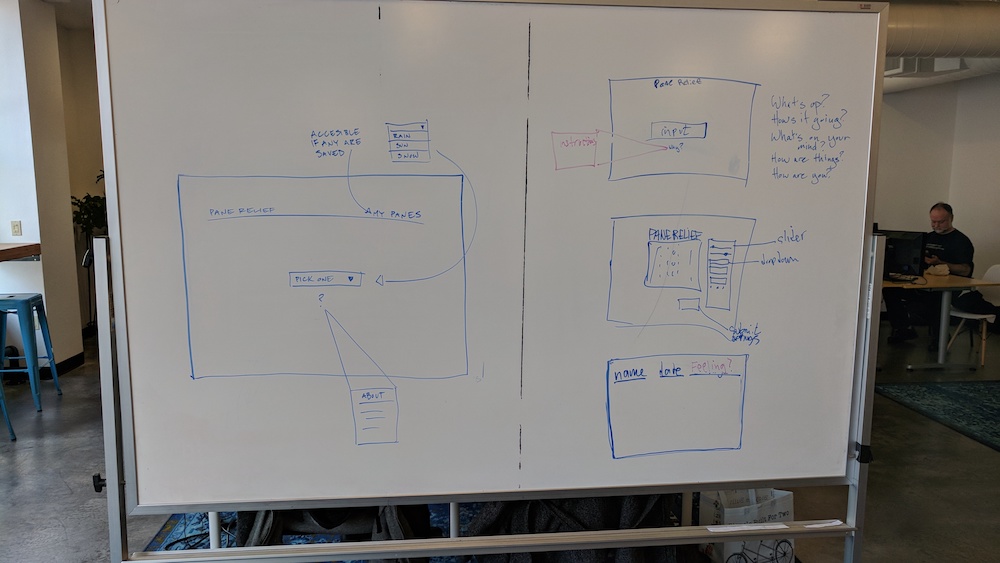 ACCESIBLE
IF ANY ARE
SAVED
RAIN
SUN
SNOW
PANE RELIEF
MY PANES
PICK ONE
?
ABOUT
PANE RELIEF
input
instructions
What's up?
How's it going?
What's on your
mind?
How are things?
How are you?
PANE RELIEF
slider
dropdown
submit
settings
name date Feeling?